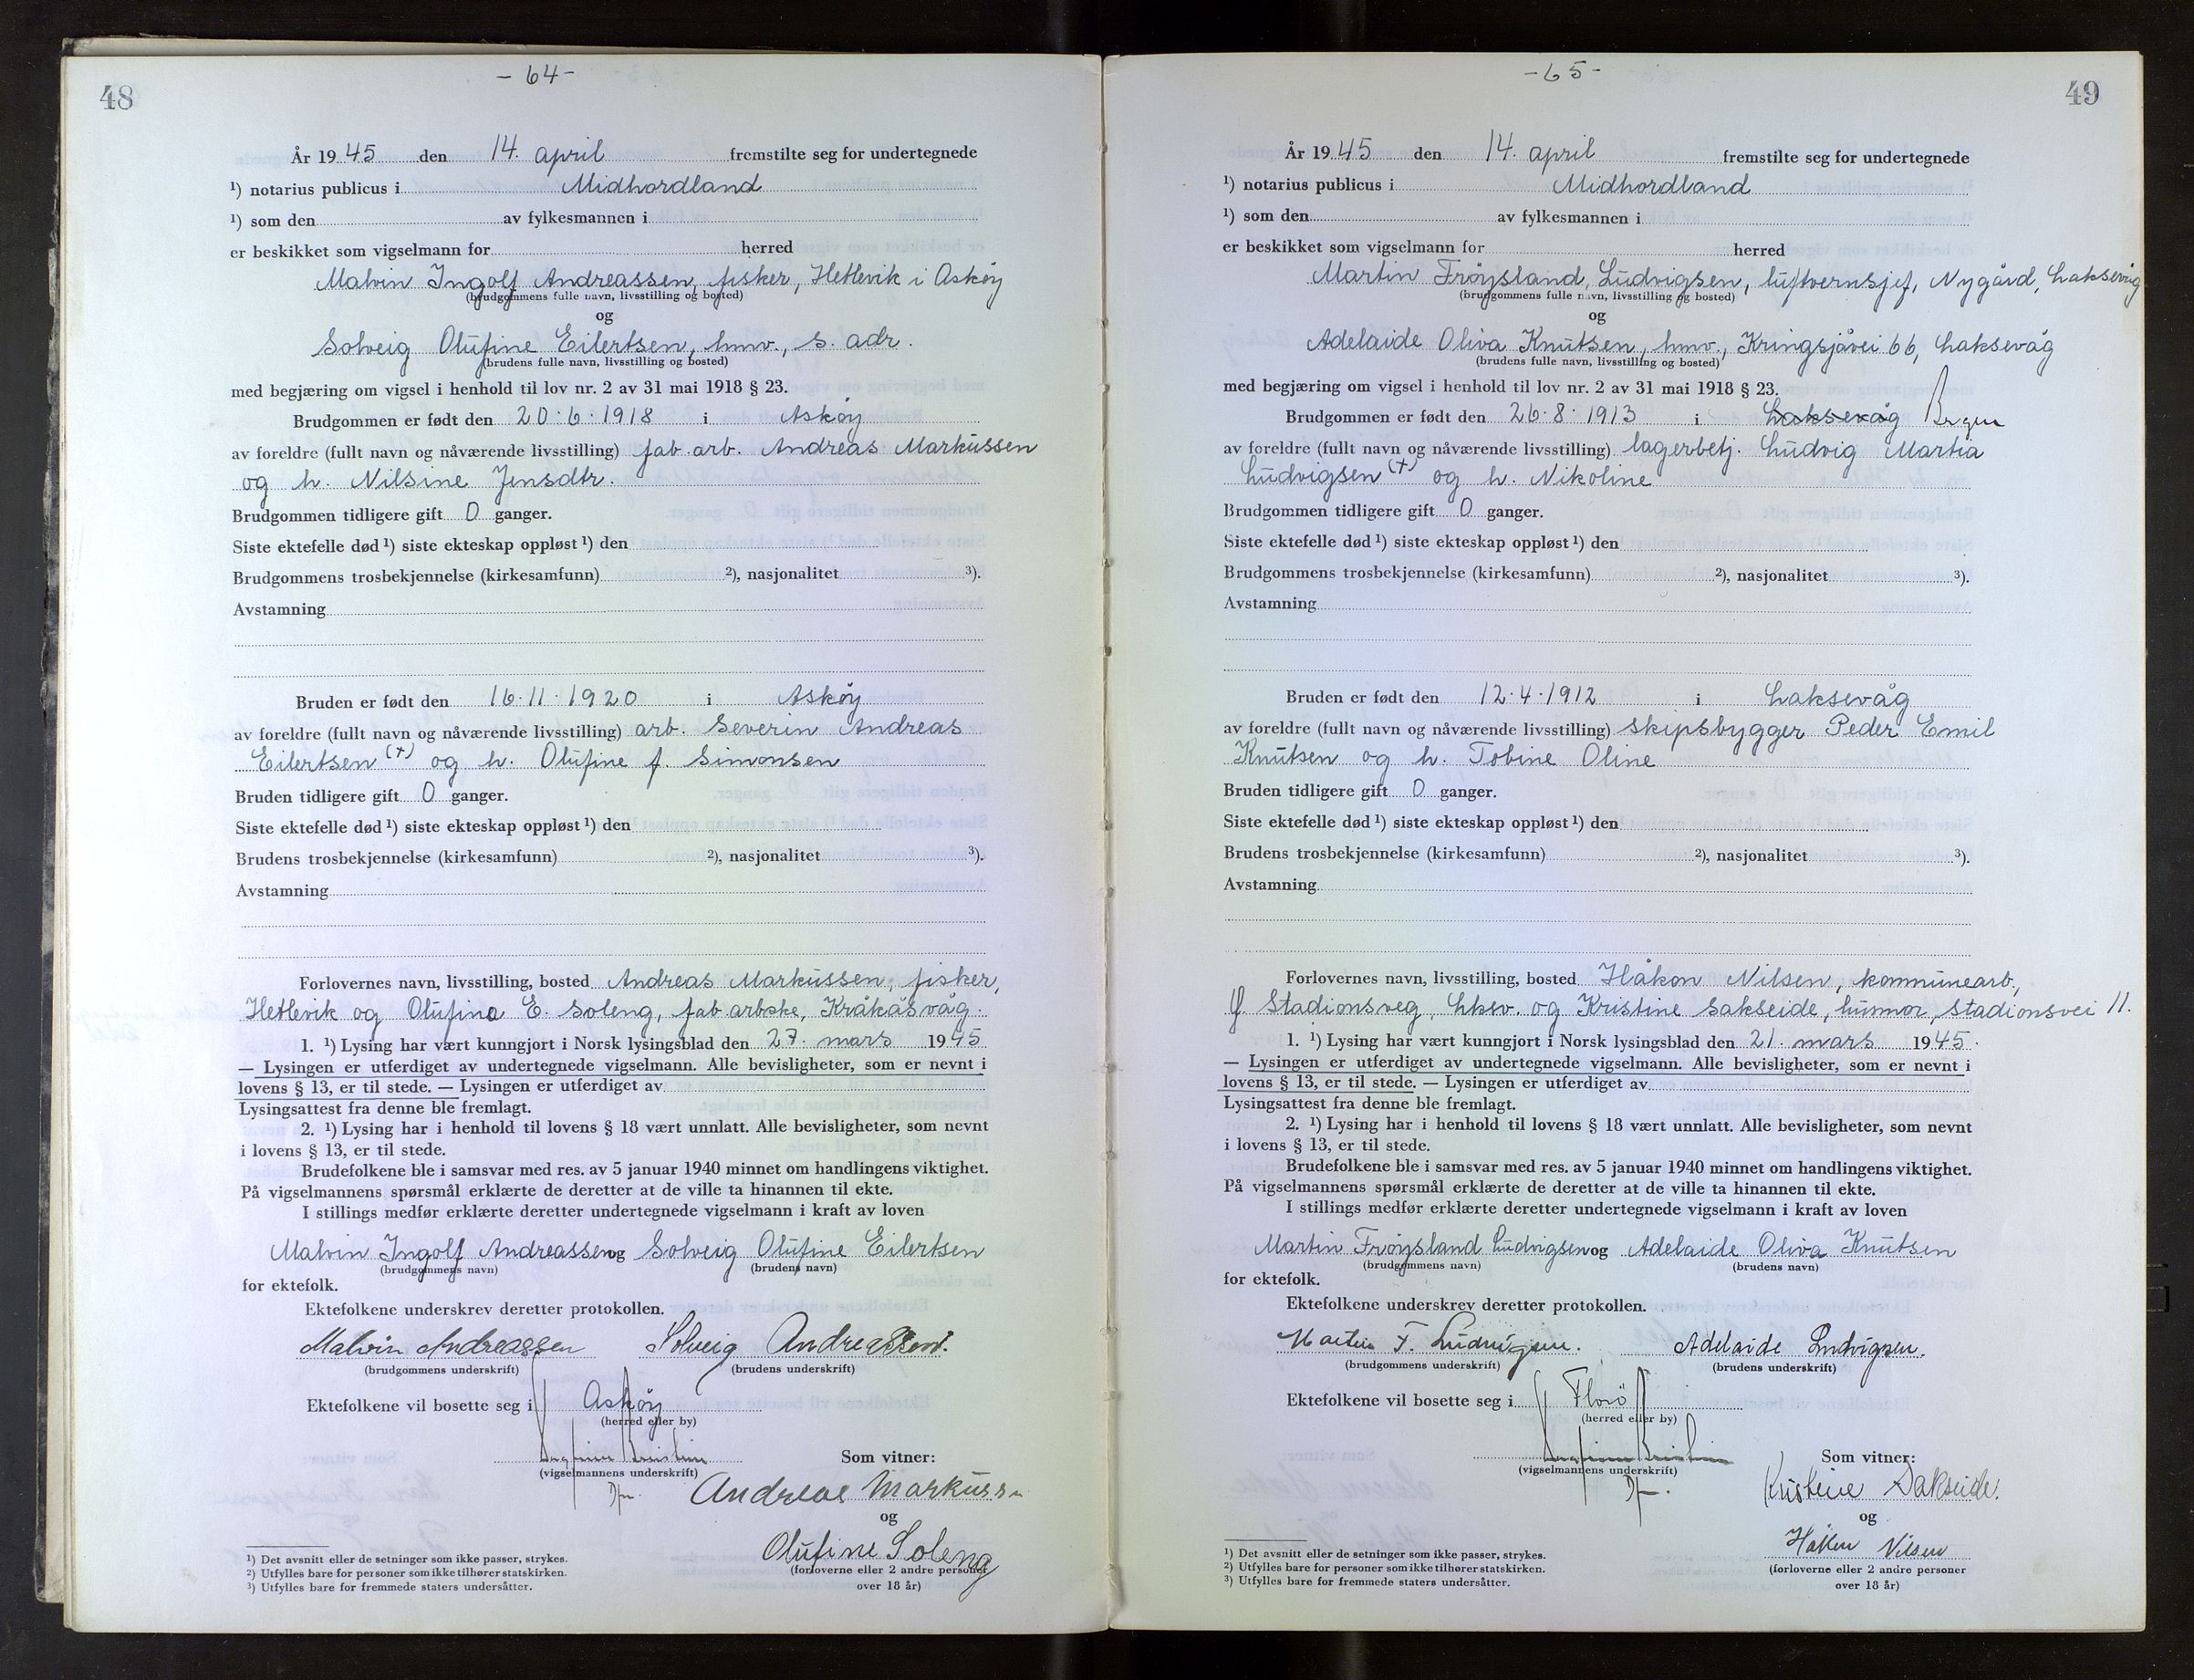 48
- 64 -
År 1945 den 14. april fremstilte seg for undertegnede
¹) notarius publicus i Midhordland
¹) som den av fylkesmannen i
er beskikket som vigselmann for herred
Malvin Ingolf Andreassen, fisker, Hetlevik i Askøy
(brudgommens fulle navn, livsstilling og bosted)
og
Solveig Olufine Eilertsen, hmv., s. adr.
(brudens fulle navn, livsstilling og bosted)
med begjæring om vigsel i henhold til lov nr. 2 av 31 mai 1918 § 23.
Brudgommen er født den 20.6.1918 i Askøy
av foreldre (fullt navn og nåværende livsstilling) fab.arb. Andreas Markussen
og h. Nilsine Jensdtr.
Brudgommen tidligere gift 0 ganger.
Siste ektefelle død ¹) siste ekteskap oppløst ¹) den
Brudgommens trosbekjennelse (kirkesamfunn) ²), nasjonalitet ³).
Avstamning
Bruden er født den 16.11.1920 i Askøy
av foreldre (fullt navn og nåværende livsstilling) arb. Severin Andreas
Eilertsen (+) og h. Olufine f. Simonsen
Bruden tidligere gift 0 ganger.
Siste ektefelle død ¹) siste ekteskap oppløst ¹) den
Brudens trosbekjennelse (kirkesamfunn) ²), nasjonalitet ³).
Avstamning
Forlovernes navn, livsstilling, bosted Andreas Markussen, fisker,
Hetlevik og Olufine E. Soleng, fab.arbske, Kråkåsvåg.
1. ¹) Lysing har vært kunngjort i Norsk lysingsblad den 27. mars 1945
— Lysingen er utferdiget av undertegnede vigselmann. Alle bevisligheter, som er nevnt i
lovens § 13, er til stede. — Lysingen er utferdiget av
Lysingsattest fra denne ble fremlagt.
2. ¹) Lysing har i henhold til lovens § 18 vært unnlatt. Alle bevisligheter, som nevnt
i lovens § 13, er til stede.
Brudefolkene ble i samsvar med res. av 5 januar 1940 minnet om handlingens viktighet.
På vigselmannens spørsmål erklærte de deretter at de ville ta hinannen til ekte.
I stillings medfør erklærte deretter undertegnede vigselmann i kraft av loven
Malvin Ingolf Andreassen og Solveig Olufine Eilertsen
(brudgommens navn) (brudens navn)
for ektefolk.
Ektefolkene underskrev deretter protokollen.
Malvin Andreassen Solveig Andreassen.
(brudgommens underskrift) (brudens underskrift)
Ektefolkene vil bosette seg i Askøy
(herred eller by)
Som vitner:
(vigselmannens underskrift)
Andreas Markussn
og
Olufine Soleng
(forloverne eller 2 andre personer
over 18 år)
¹) Det avsnitt eller de setninger som ikke passer, strykes.
²) Utfylles bare for personer som ikke tilhører statskirken.
³) Utfylles bare for fremmede staters undersåtter.
49
- 65 -
År 1945 den 14. april fremstilte seg for undertegnede
¹) notarius publicus i Midhordland
¹) som den av fylkesmannen i
er beskikket som vigselmann for herred
Martin Frøysland Ludvigsen, luftvernsjef, Nygård, Laksevåg
(brudgommens fulle navn, livsstilling og bosted)
og
Adelaide Oliva Knutsen, hmv., Kringsjåvei 66, Laksevåg
(brudens fulle navn, livsstilling og bosted)
med begjæring om vigsel i henhold til lov nr. 2 av 31 mai 1918 § 23.
Brudgommen er født den 26.8.1913 i Laksevåg Bergen
av foreldre (fullt navn og nåværende livsstilling) lagerbetj. Ludvig Martia
Ludvigsen (+) og h. Nikoline
Brudgommen tidligere gift 0 ganger.
Siste ektefelle død ¹) siste ekteskap oppløst ¹) den
Brudgommens trosbekjennelse (kirkesamfunn) ²), nasjonalitet ³).
Avstamning
Bruden er født den 12.4.1912 i Laksevåg
av foreldre (fullt navn og nåværende livsstilling) skipsbygger Peder Emil
Knutsen og h. Tobine Oline
Bruden tidligere gift 0 ganger.
Siste ektefelle død ¹) siste ekteskap oppløst ¹) den
Brudens trosbekjennelse (kirkesamfunn) ²), nasjonalitet ³).
Avstamning
Forlovernes navn, livsstilling, bosted Håkon Nilsen, kommunearb.,
Stadionsveg, Lksv. og Kristine Sakseide, husmor, Stadionsvei 11.
1. ¹) Lysing har vært kunngjort i Norsk lysingsblad den 21. mars 1945.
— Lysingen er utferdiget av undertegnede vigselmann. Alle bevisligheter, som er nevnt i
lovens § 13, er til stede. — Lysingen er utferdiget av
Lysingsattest fra denne ble fremlagt.
2. ¹) Lysing har i henhold til lovens § 18 vært unnlatt. Alle bevisligheter, som nevnt
i lovens § 13, er til stede.
Brudefolkene ble i samsvar med res. av 5 januar 1940 minnet om handlingens viktighet.
På vigselmannens spørsmål erklærte de deretter at de ville ta hinannen til ekte.
I stillings medfør erklærte deretter undertegnede vigselmann i kraft av loven
Martin Frøysland Ludvigsen og Adelaide Oliva Knutsen
(brudgommens navn) (brudens navn)
for ektefolk.
Ektefolkene underskrev deretter protokollen.
Martin F. Ludvigsen. Adelaide Ludvigsen.
(brudgommens underskrift) (brudens underskrift)
Ektefolkene vil bosette seg i Florö
(herred eller by)
Som vitner:
(vigselmannens underskrift)
Kristine Sakseide.
og
Håkon Nilsen
(forloverne eller 2 andre personer
over 18 år)
¹) Det avsnitt eller de setninger som ikke passer, strykes.
²) Utfylles bare for personer som ikke tilhører statskirken.
³) Utfylles bare for fremmede staters undersåtter.